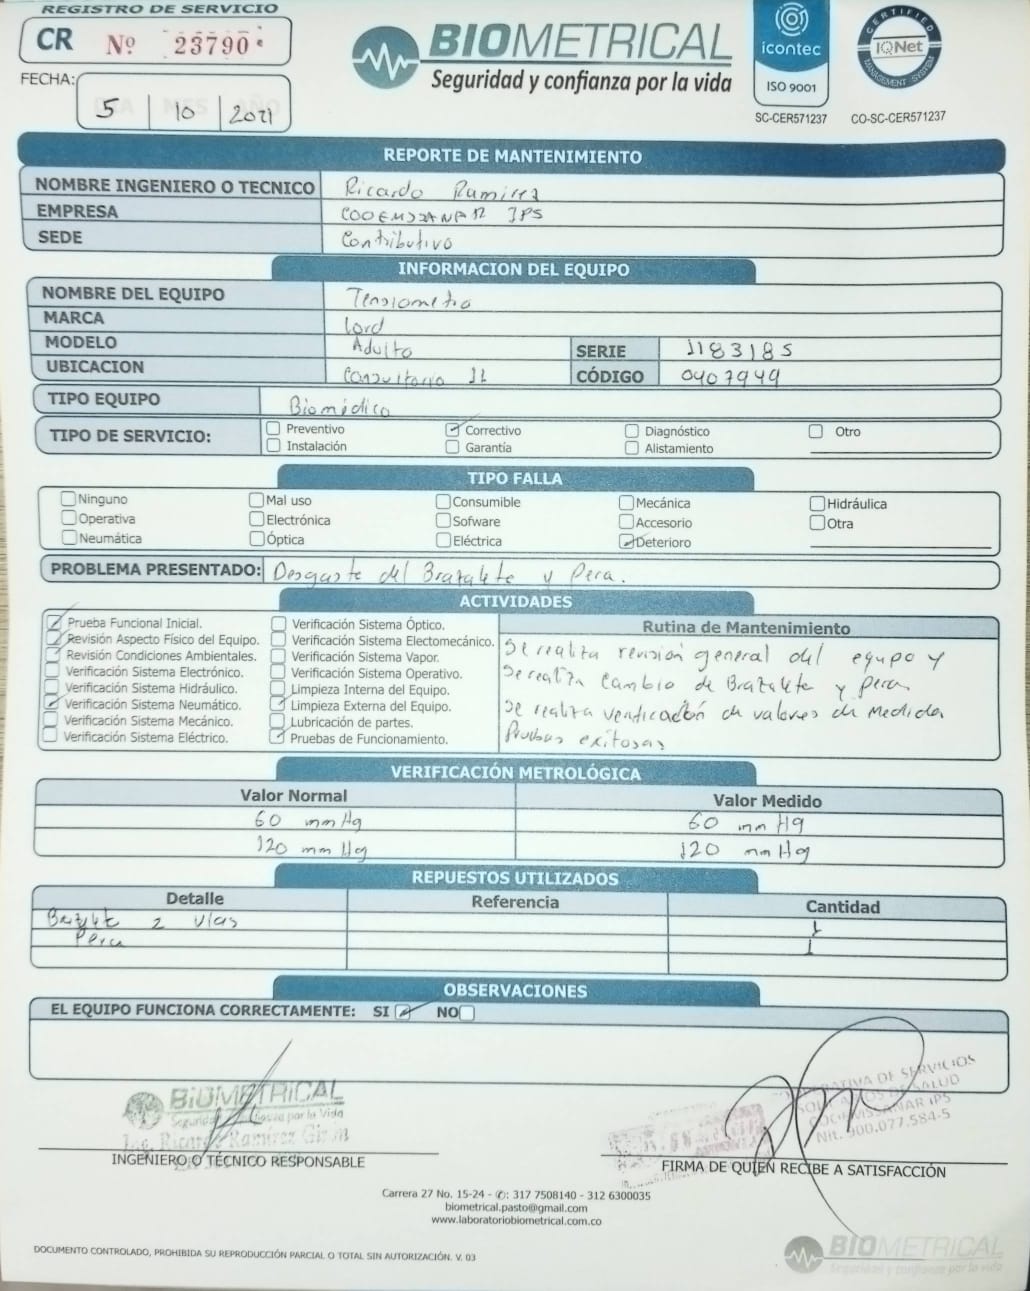 REGISTRO DE SERVICIO
CR Nº 23790
BIOMETRICAL
Seguridad y confianza por la vida
icontec
ISO 9001
SC-CER571237
CERTIFIED
IQNet
MANAGEMENT SYSTEM
CO-SC-CER571237
FECHA:
DIA MES AÑO
5 10 2021
REPORTE DE MANTENIMIENTO
NOMBRE INGENIERO O TECNICO Ricardo Ramirez
EMPRESA COOEMSSANAR IPS
SEDE Contributivo
INFORMACION DEL EQUIPO
NOMBRE DEL EQUIPO Tensiometro
MARCA Lord
MODELO Adulto SERIE 1183185
UBICACION Consultorio 11 CÓDIGO 0407949
TIPO EQUIPO Biomédico
TIPO DE SERVICIO: Preventivo Correctivo Diagnóstico Otro
Instalación Garantía Alistamiento
TIPO FALLA
Ninguno Mal uso Consumible Mecánica Hidráulica
Operativa Electrónica Sofware Accesorio Otra
Neumática Óptica Eléctrica Deterioro
PROBLEMA PRESENTADO: Desgaste del Brazalete y Pera.
ACTIVIDADES
Prueba Funcional Inicial.
Revisión Aspecto Físico del Equipo.
Revisión Condiciones Ambientales.
Verificación Sistema Electrónico.
Verificación Sistema Hidráulico.
Verificación Sistema Neumático.
Verificación Sistema Mecánico.
Verificación Sistema Eléctrico.
Verificación Sistema Óptico.
Verificación Sistema Electomecánico.
Verificación Sistema Vapor.
Verificación Sistema Operativo.
Limpieza Interna del Equipo.
Limpieza Externa del Equipo.
Lubricación de partes.
Pruebas de Funcionamiento.
Rutina de Mantenimiento
Se realiza revisión general del equipo y
Se realiza cambio de Brazalete y pera
se realiza verificación de valores de Medida
Pruebas exitosas
VERIFICACIÓN METROLÓGICA
Valor Normal Valor Medido
60 mmHg 60 mmHg
120 mmHg 120 mmHg
REPUESTOS UTILIZADOS
Detalle Referencia Cantidad
Bazlte 2 vias 1
Pera 1
OBSERVACIONES
EL EQUIPO FUNCIONA CORRECTAMENTE: SI NO
BIOMETRICAL
Seguridad y Confianza por la Vida
Ing. Ricardo Ramírez Giron
INGENIERO O TÉCNICO RESPONSABLE
COOPERATIVA DE SERVICIOS
SOLIDARIOS DE SALUD
COOEMSSANAR IPS
Nit. 900.077.584-5
FIRMA DE QUIEN RECIBE A SATISFACCIÓN
Carrera 27 No. 15-24 - ✆: 317 7508140 - 312 6300035
biometrical.pasto@gmail.com
www.laboratoriobiometrical.com.co
DOCUMENTO CONTROLADO, PROHIBIDA SU REPRODUCCIÓN PARCIAL O TOTAL SIN AUTORIZACIÓN. V. 03
BIOMETRICAL
Seguridad y confianza por la vida